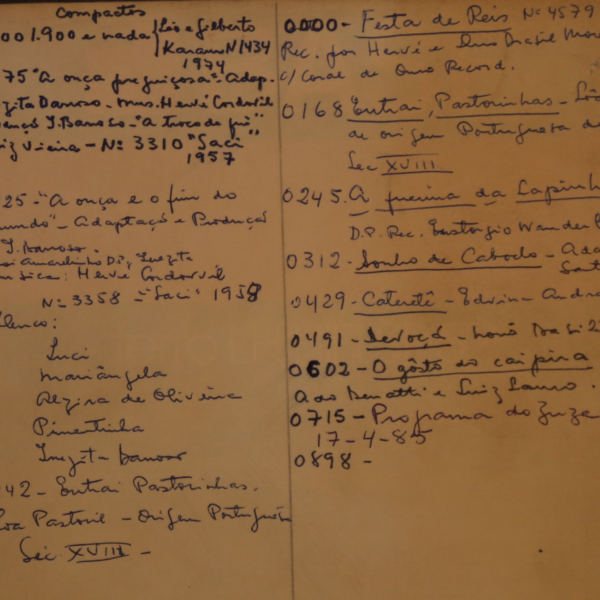 Compactos
001.900 e nada
Léo e Gilberto
Karam Nº 1434
1974
75 "A onça preguiçosa" - Adap.
Danoso - Mus. Hervé Cordovil
J. Barroso - "A troco de quê"
iz Vieira - Nº 3310 "Saci"
1957
25 - "A onça e o fim do
undo" - Adaptaçõ e Produçõ
J. Barroso.
Amarelinho D; Inezita
sica: Hervé Cordovil
Nº 3358 - "Saci" 1958
lenco:
Luci
Mariângela
Alzira de Oliveira
Pimentinha
Inezita Barroso
42 - Entrai Pastorinhas.
oa Pastoril - Origem Portuguesa
Séc. XVIII -
0000 - Festa de Reis Nº 4579
Rec. por Hervé e
c/ Coral de Ouro Record.
0168 Entrai, Pastorinhas - Lôa
de origem Portuguesa do
Sec XVIII
0245. A queima da Lapinha
D.P. Rec. Eustórgio Wanderl
0312 - Sonho de Caboclo - Ada
Sant
0429 - Cateretê - Edvina Andra
0491 - Devoçõ -
0602 - O gôsto do caipira
Ado Benatti e Luiz Lauro.
0715 - Programa do Zuza
17-4-85
0898 -